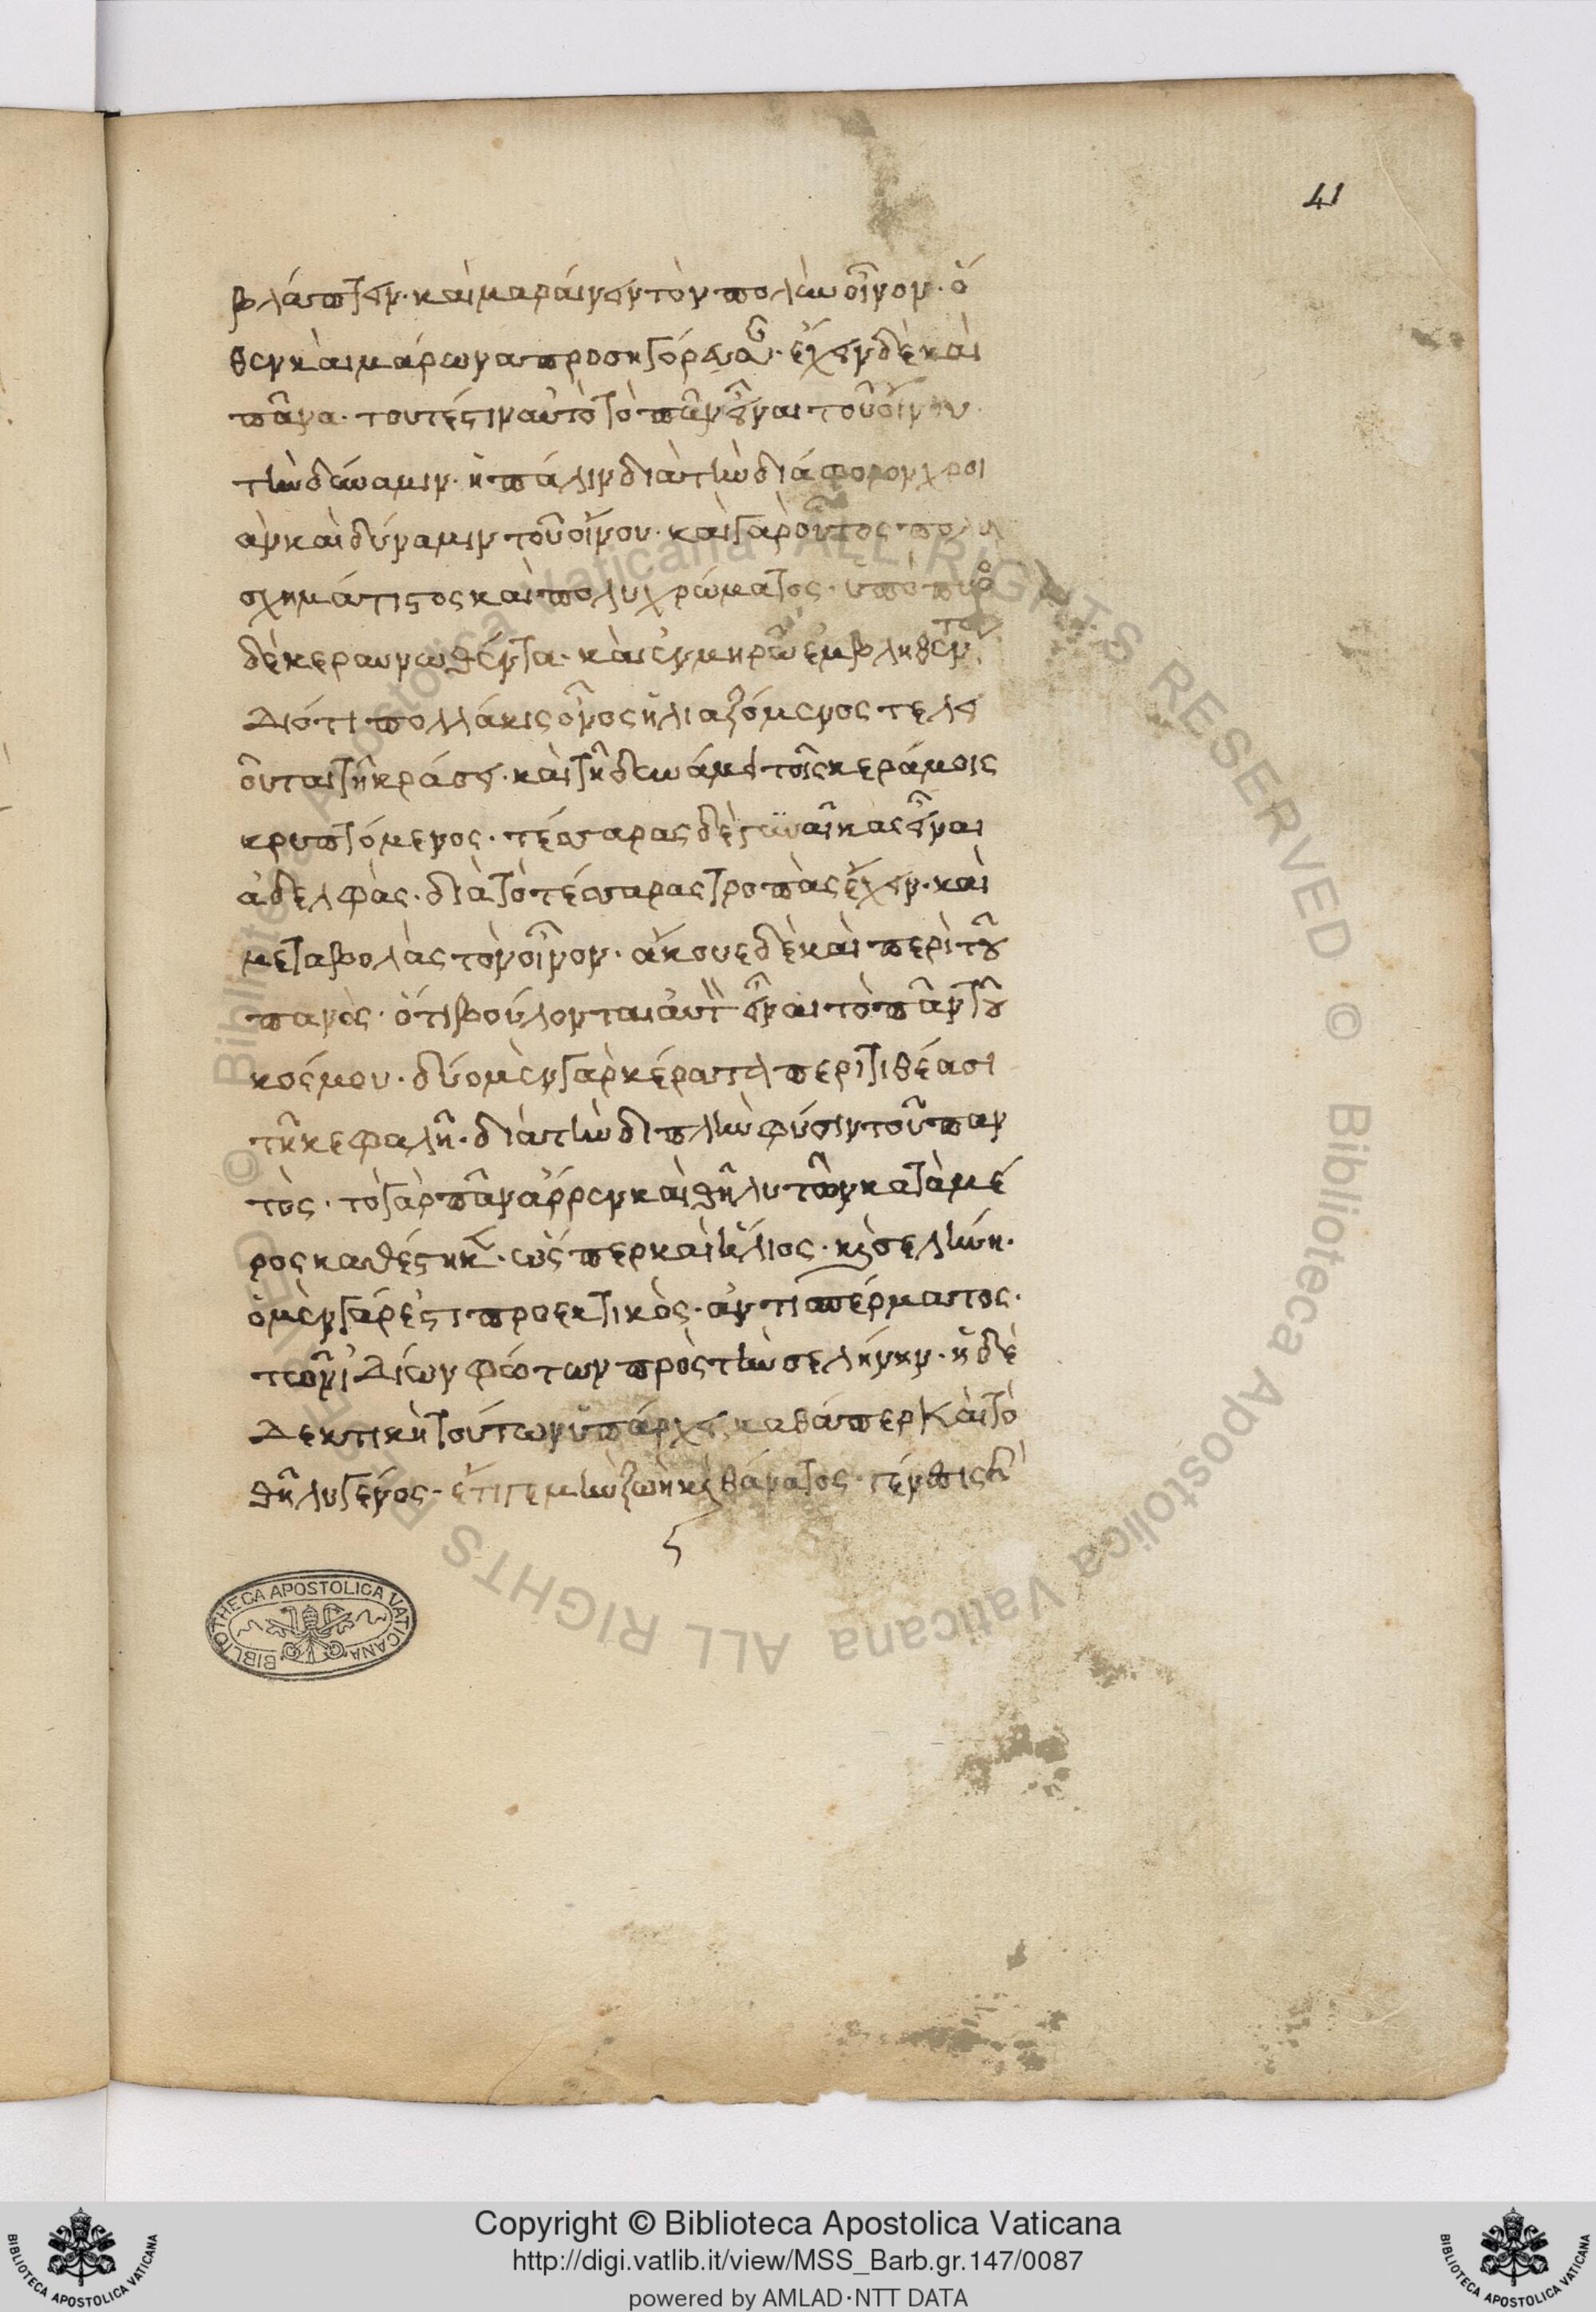 41
βλάπτειν· καὶ μαραίνειν τὸν πολὺν οἶνον· ὅ
θεν καὶ μάρωνα προσηγόρευσαν· ἔχειν δὲ καὶ
πᾶνα· τουτέστιν αὐτὸ τὸ πᾶν εἶναι τοῦ οἴνου
τὴν δύναμιν· ἢ πάλιν διὰ τὴν διάφορον χροι
ὰν καὶ δύναμιν τοῦ οἴνου· καὶ γὰρ οὗτος πολυ
σχημάτιστος καὶ πολυχρώματος· ὑπὸ πυρὸς
δὲ κεραυνωθέντα· καὶ ἐν μηρῶ ἐμβληθέντα
Διότι πολλάκις οἶνος ἡλιαζόμενος τελει
οῦται τῆ κράσει· καὶ τῆ δυνάμει τοῖς κεράμοις
κρυπτόμενος· τέσσαρας δὲ γυναῖκας εἶναι
ἀδελφὰς· διὰ τὸ τέσσαρας τροπὰς ἔχειν· καὶ
μεταβολὰς τὸν οἶνον· ἄκουε δὲ καὶ περὶ τοῦ
πανὸς· ὅτι βούλονται αὐτὸν εἶναι τὸ πᾶν τοῦ
κόσμου· δύο μὲν γὰρ κέρατα περιτιθέασι
τῆ κεφαλῆ· διὰ τὴν διπλὴν φύσιν τοῦ παν
τὸς· τὸ γὰρ πᾶν ἄρρεν καὶ θῆλυ τῶν κατὰ μέ
ρος καθέστηκεν· ὥσπερ καὶ ἥλιος· καὶ σελήνη·
ὁ μὲν γάρ ἐστι προεκτικὸς· ἀντὶ σπέρματος·
τῶν ἰδίων φώτων πρὸς τὴν σελήνην· ἡ δὲ
Δεκτικὴ τούτων ὑπάρχει καθάπερ καὶ τὸ
θῆλυ γένος· ἔτι γε μὴν ζωὴ καὶ θάνατος· γένεσις καὶ
BIBLIOTHECA APOSTOLICA VATICANA
© Biblioteca Apostolica Vaticana ALL RIGHTS RESERVED © Biblioteca Apostolica Vaticana ALL RIGHTS RESERVED
Copyright © Biblioteca Apostolica Vaticana
http://digi.vatlib.it/view/MSS_Barb.gr.147/0087
powered by AMLAD·NTT DATA
BIBLIOTECA APOSTOLICA VATICANA
BIBLIOTECA APOSTOLICA VATICANA